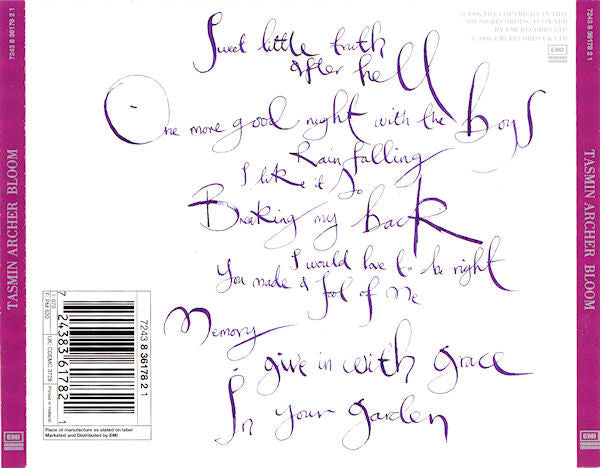 7243 8 36178 2 1
TASMIN ARCHER BLOOM
EMI
℗ 1996 THE COPYRIGHT IN THIS
SOUND RECORDING IS OWNED
BY EMI RECORDS LTD
© 1996 EMI RECORDS UK LTD
EMI
Sweet little truth
after hell
One more good night with the boys
Rain falling
I like it so
Breaking my back
I would love to be right
You made a fool of me
Memory
i give in with grace
In your garden
7243 8 36178 2 1
7 24383 61782 1
UK: CDEMC 3728
Printed in Holland
Place of manufacture as stated on label
Marketed and Distributed by EMI
7243 8 36178 2 1
TASMIN ARCHER BLOOM
EMI